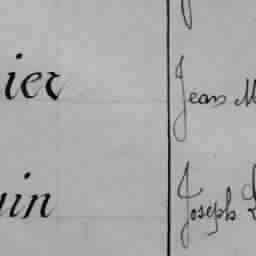 ier Jean M
uin Joseph